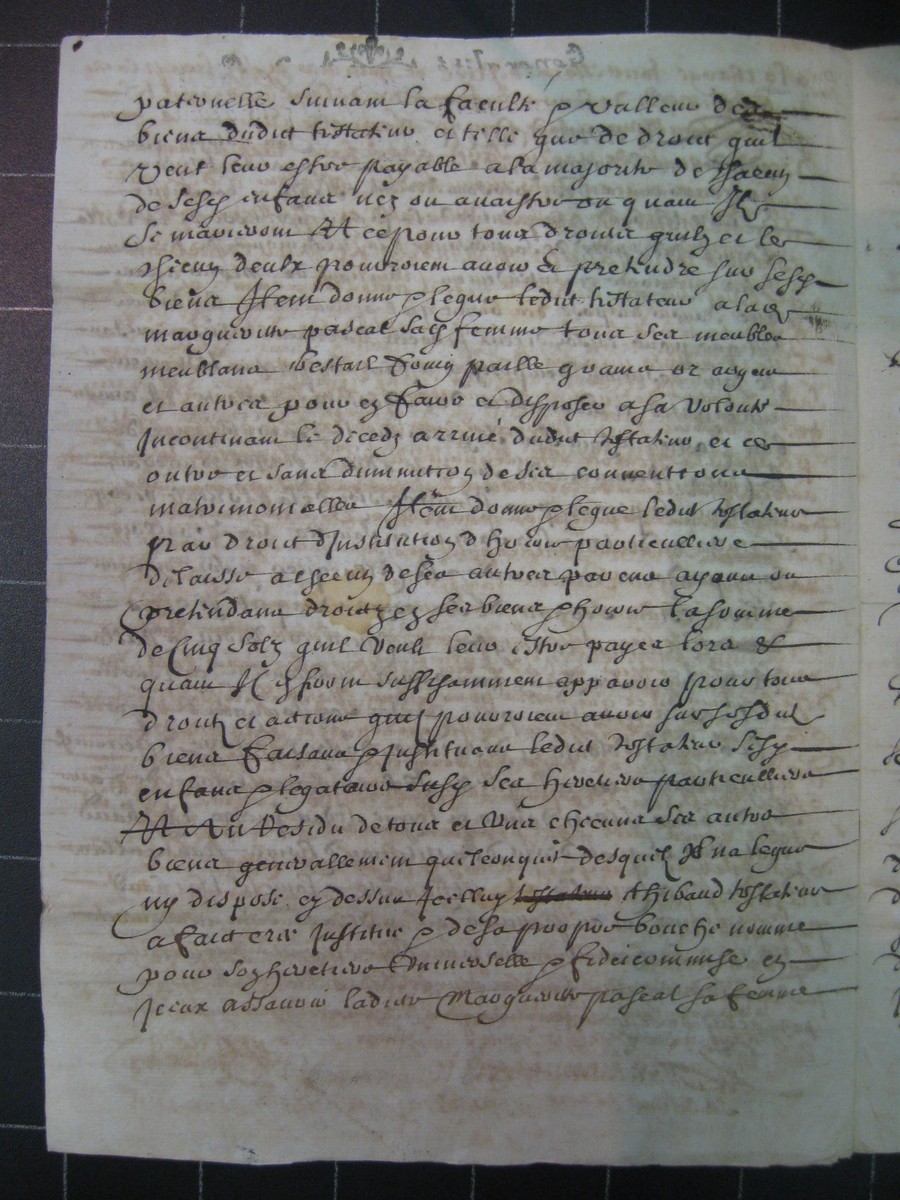 paternelle suivant la faculté & valleur des
biens dudict testateur et telle que de droict quil
veut leur estre payable a la majorité de chacun
de sesd enfans nez ou a naistre ou quant Ilz
se marieront Et ce pour tous droictz quilz et les
chieux deulx pourroient avoir & pretendre sur sesd
biens Item donne & legue ledict testateur a lad
marguerite pascal sad femme tous ses meubles
meublans bestail foing paille grains or argent
et autres pour en faire et disposer a sa volonté
Incontinant le deceds arrivé dudict testateur et ce
outre et sans diminution de ses conventions
matrimonialles Item donne & legue ledict testateur
par droict dInstitution dhoirie particulliere
delaisse a chacun de ses autres parens ayans ou
pretendans droictz en ses biens & hoirie la somme
de cinq solz quil veult leur estre payes lors &
quant Ilz feront suffisamment apparoir pour tous
droictz et actions quilz pourroient avoir sur sesdictz
biens faisans & Instituant ledict testateur sesd
enfans & legataires susd ses heretiers particulliers
Et Au Residu de tous et uns chacuns ses autres
biens generallement quelconques desquelz Il na legué
ny disposé cy dessus Icelluy testateur thibaud testateur
a faict creé Institué & de sa propre bouche nommé
pour son heretiere universelle & fideicommise en
Iceux assavoir ladicte Marguerite pascal sa femme